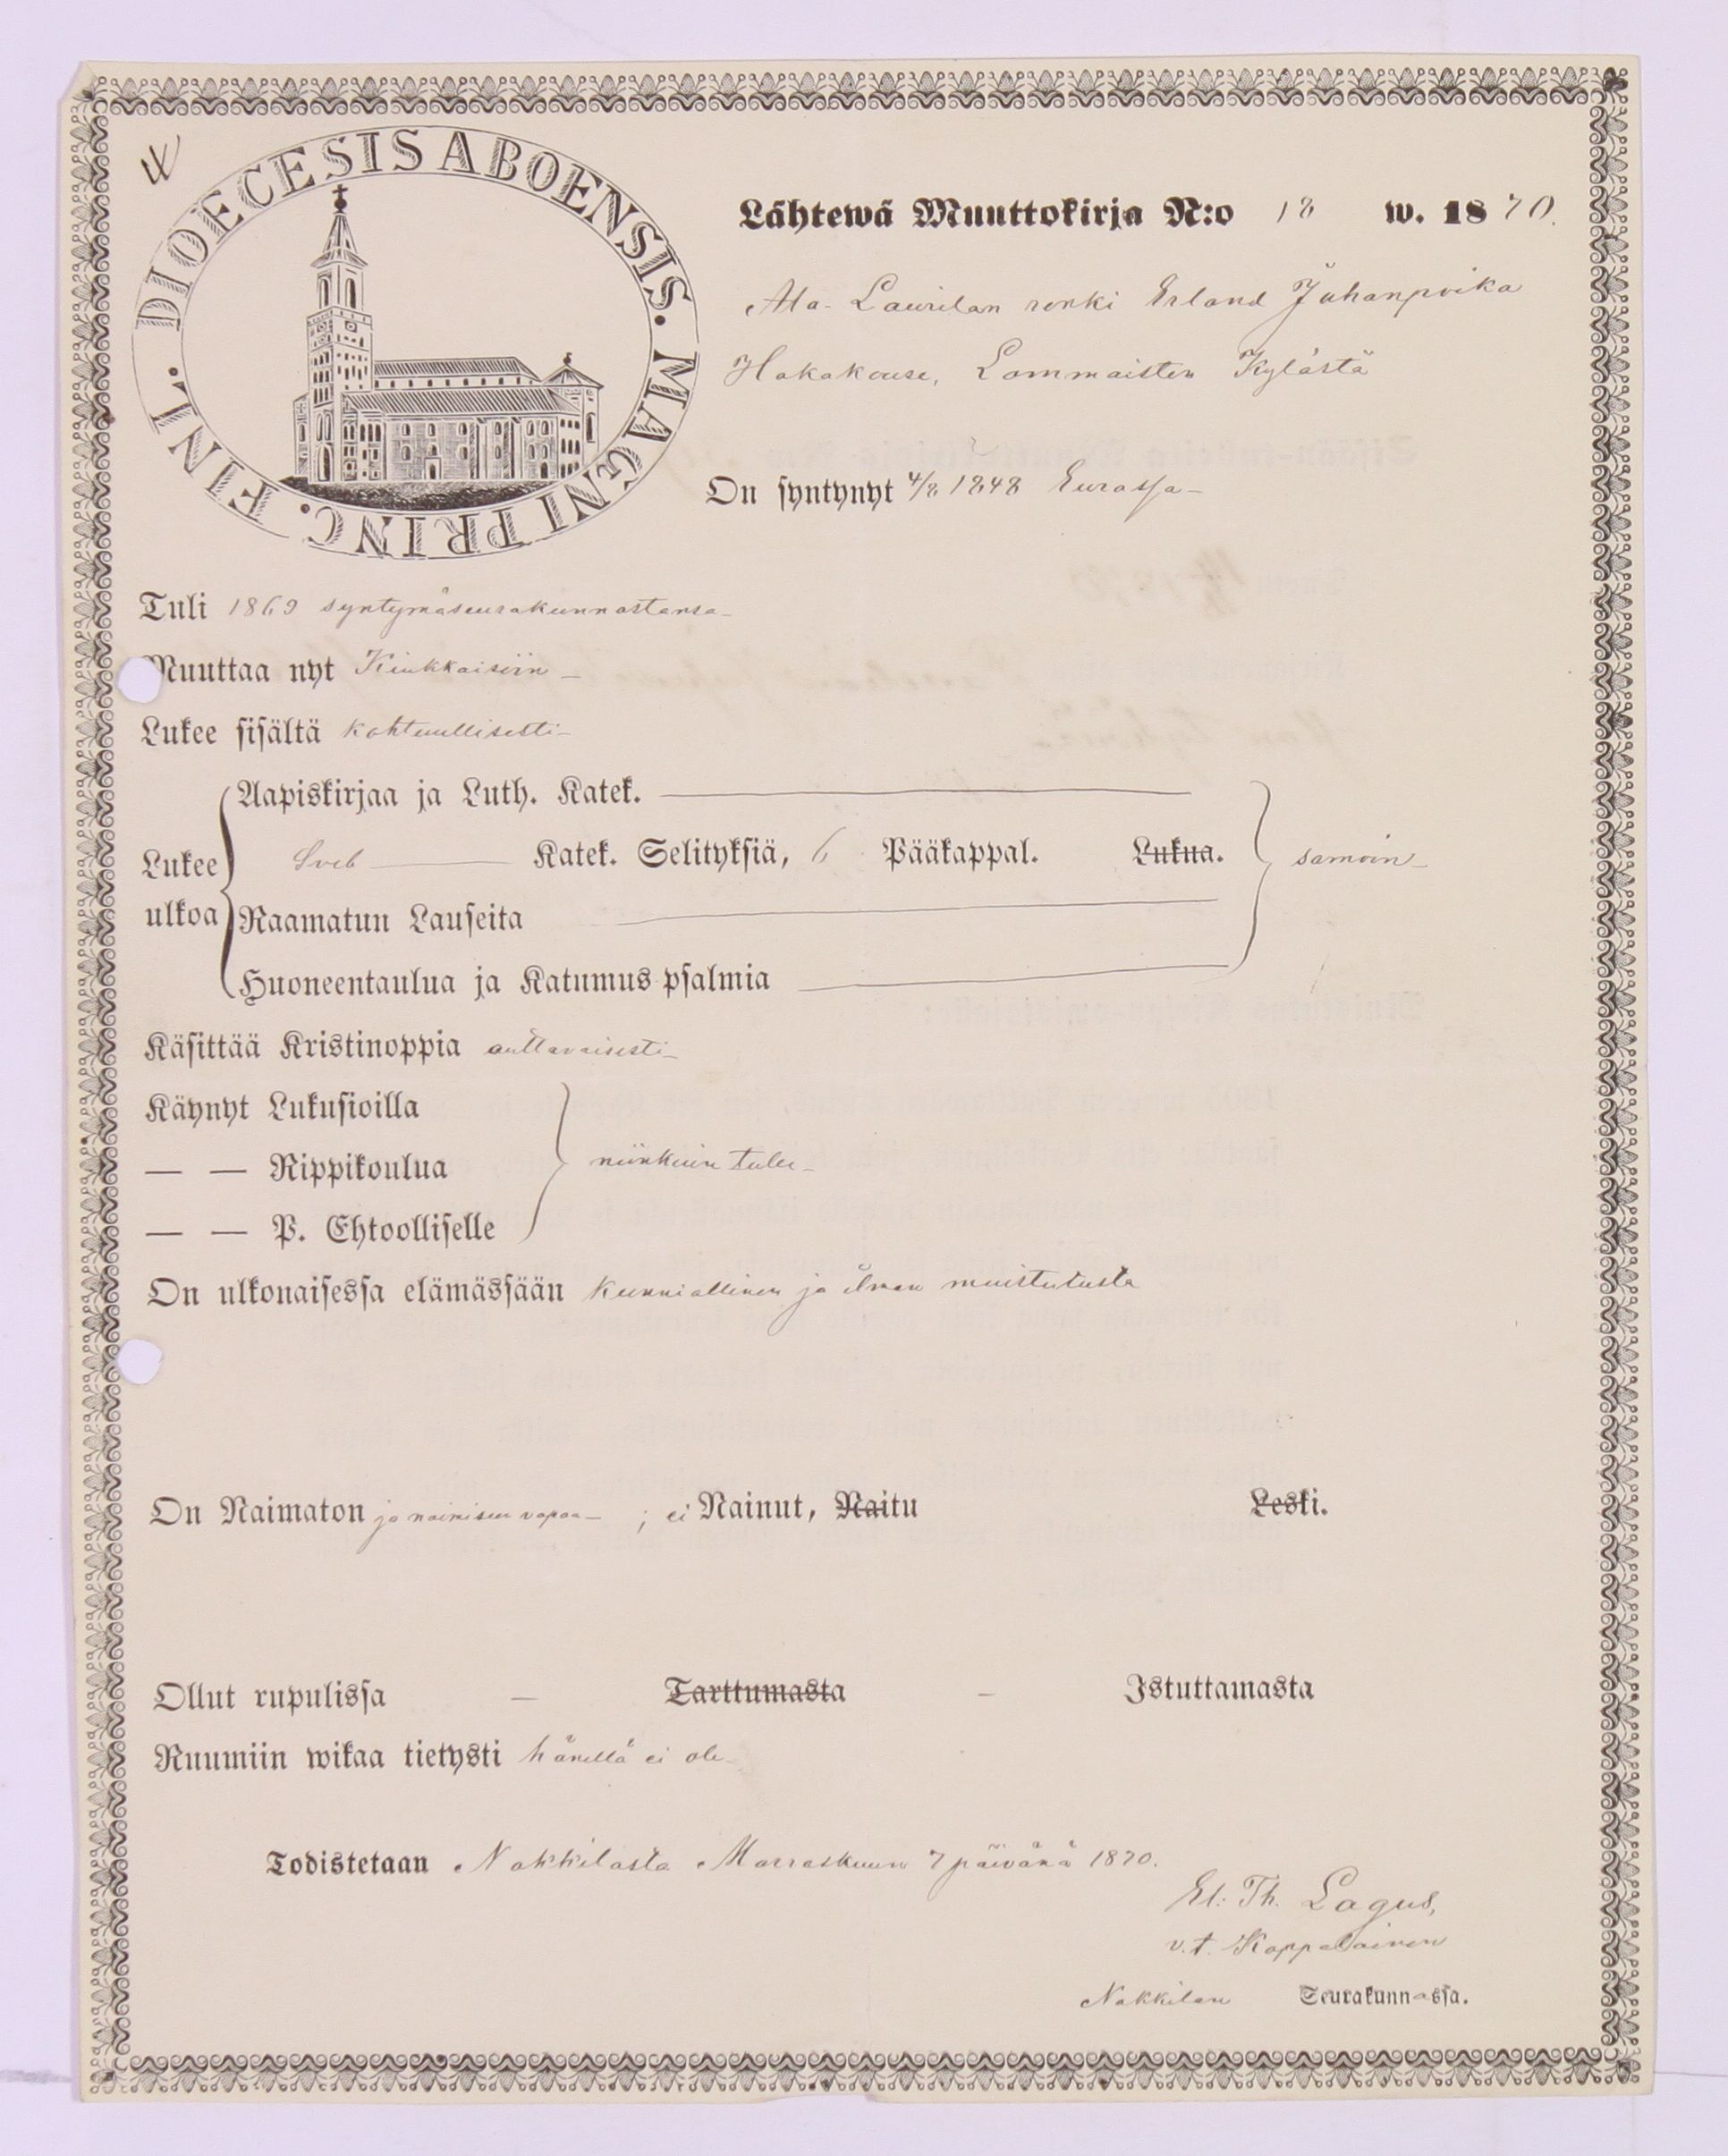 DIOECESIS ABOENSIS. MAGNI PRINC. FINL.
Lähtewä Muuttokirja N:o 18 w. 1870.
Ala-Laurilan renki Erland Juhanpoika
Lommaisten Kylästä
On syntynyt 4/8 1848 Eurassa-
Tuli 1869 syntymäseurakunnastansa-
Muuttaa nyt Kiukkaisiin-
Lukee sisältä kohtuullisesti-
Aapiskirjaa ja Luth. Katek.
Lukee ulkoa
Sveb Katek. Selityksiä, 6 Pääkappal. Lukua. samoin-
Raamatun Lauseita
Huoneentaulua ja Katumus psalmia
Käsittää Kristinoppia auttavaisesti-
Käynyt Lukusioilla
— — Rippikoulua niinkuin tulee-
— — P. Ehtoolliselle
On ulkonaisessa elämässään kunniallinen ja ilman muistutusta
On Naimaton ja naimisen vapaa- ; ei Nainut, Naitu Leski.
Ollut rupulissa - Tarttumasta - Istuttamasta
Ruumiin wikaa tietysti hänellä ei ole-
Todistetaan Nakkilasta Marraskuun 7 päivänä 1870.
El: Th. Lagus,
v.t. Kappalainen
Nakkilan Seurakunnassa.